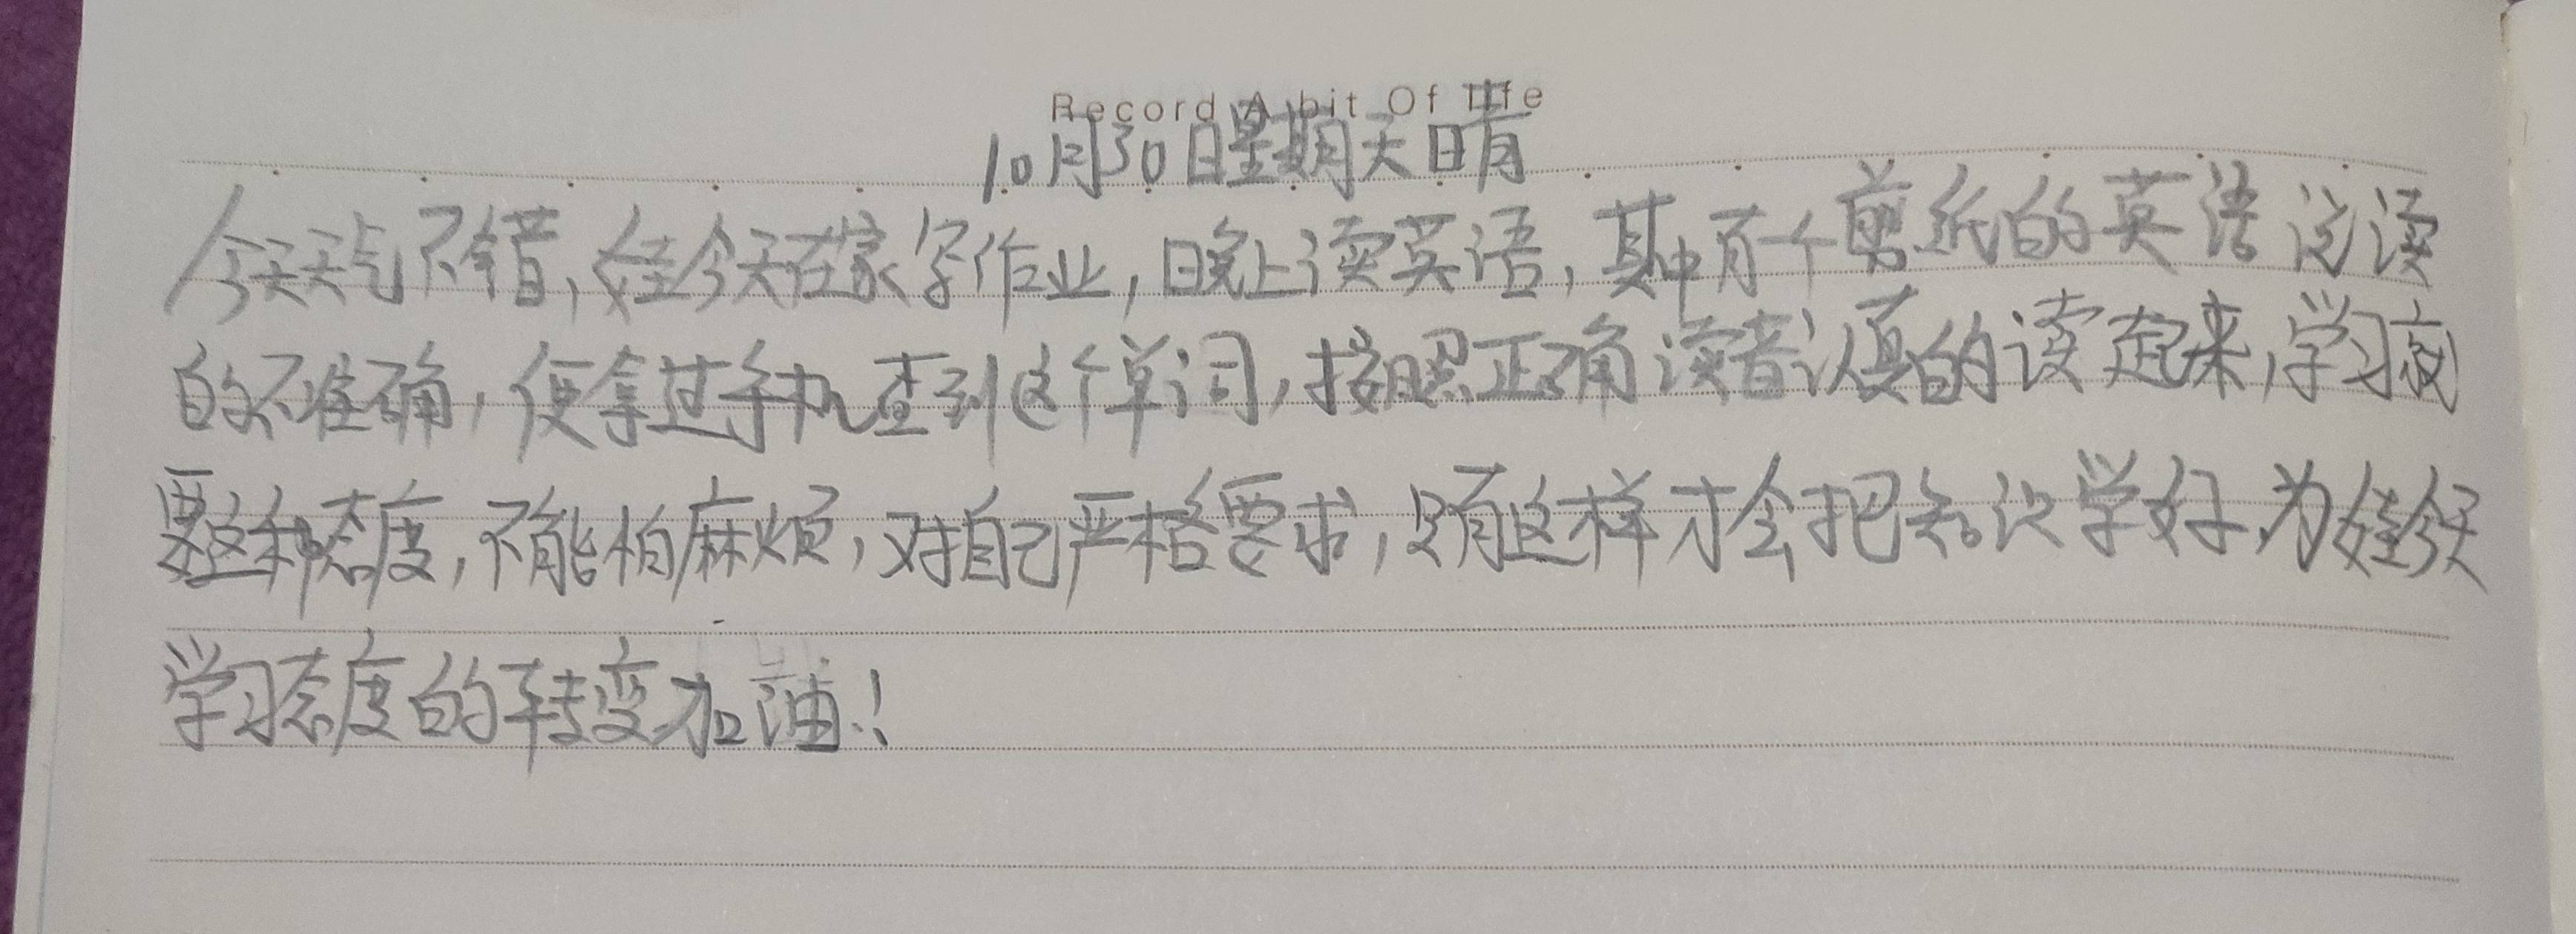 Record A bit Of life
10月30日星期天晴
今天天气不错,娃今天在家写作业,晚上读英语,其中有一个剪纸的英语没读
的不准确,便拿过手机查到这个单词,按照正确读音认真的读起来,学习就
要这种态度,不能怕麻烦,对自己严格要求,只有这样才会把知识学好,为娃今天
学习态度的转变加油!